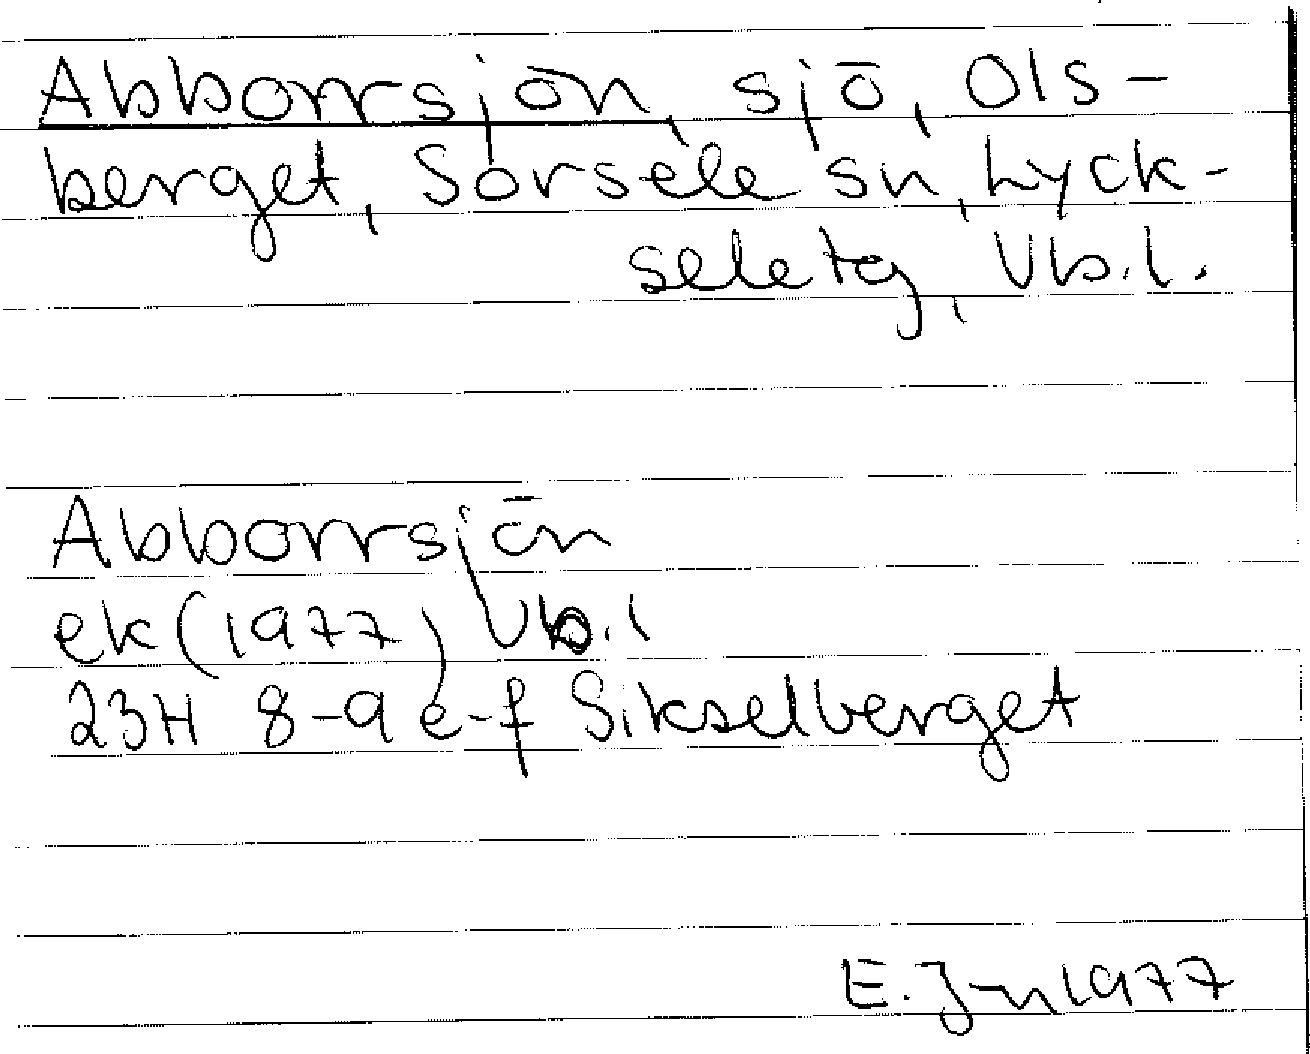 Abborrsjön, sjö, Ols-
berget, Sorsele sn, Lyck-
sele tg, Vb.l.
Abborrsjön
ek (1977) Vb.l
23H 8-9 e-f Sikselberget
E. J-n 1977